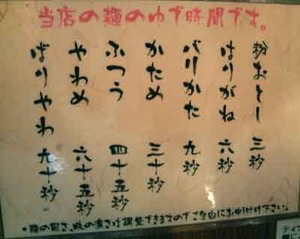 当店の麺のゆで時間です。
粉おとし 三秒
はりがね 六秒
バリかた 九秒
かため 三十秒
ふつう 四十五秒
やわめ 六十五秒
ばりやわ 九十秒
・麺の固さ、味の濃さは調整できますのでご自由にお申し付け下さい。